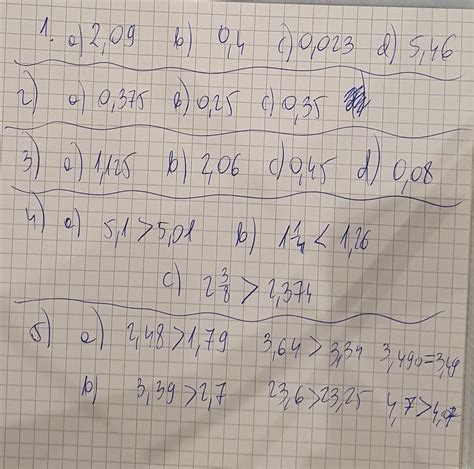 1. a) 2,09 b) 0,4 c) 0,023 d) 5,46
2) a) 0,375 b) 0,25 c) 0,35
3) a) 1,125 b) 2,06 c) 0,45 d) 0,08
4) a) 5,1 > 5,01 b) 1 1/4 < 1,26
c) 2 3/8 > 2,374
5) a) 2,48 > 1,79 3,64 > 3,34 3,490 = 3,49
b) 3,39 > 2,7 23,6 > 23,25 4,7 > 4,07